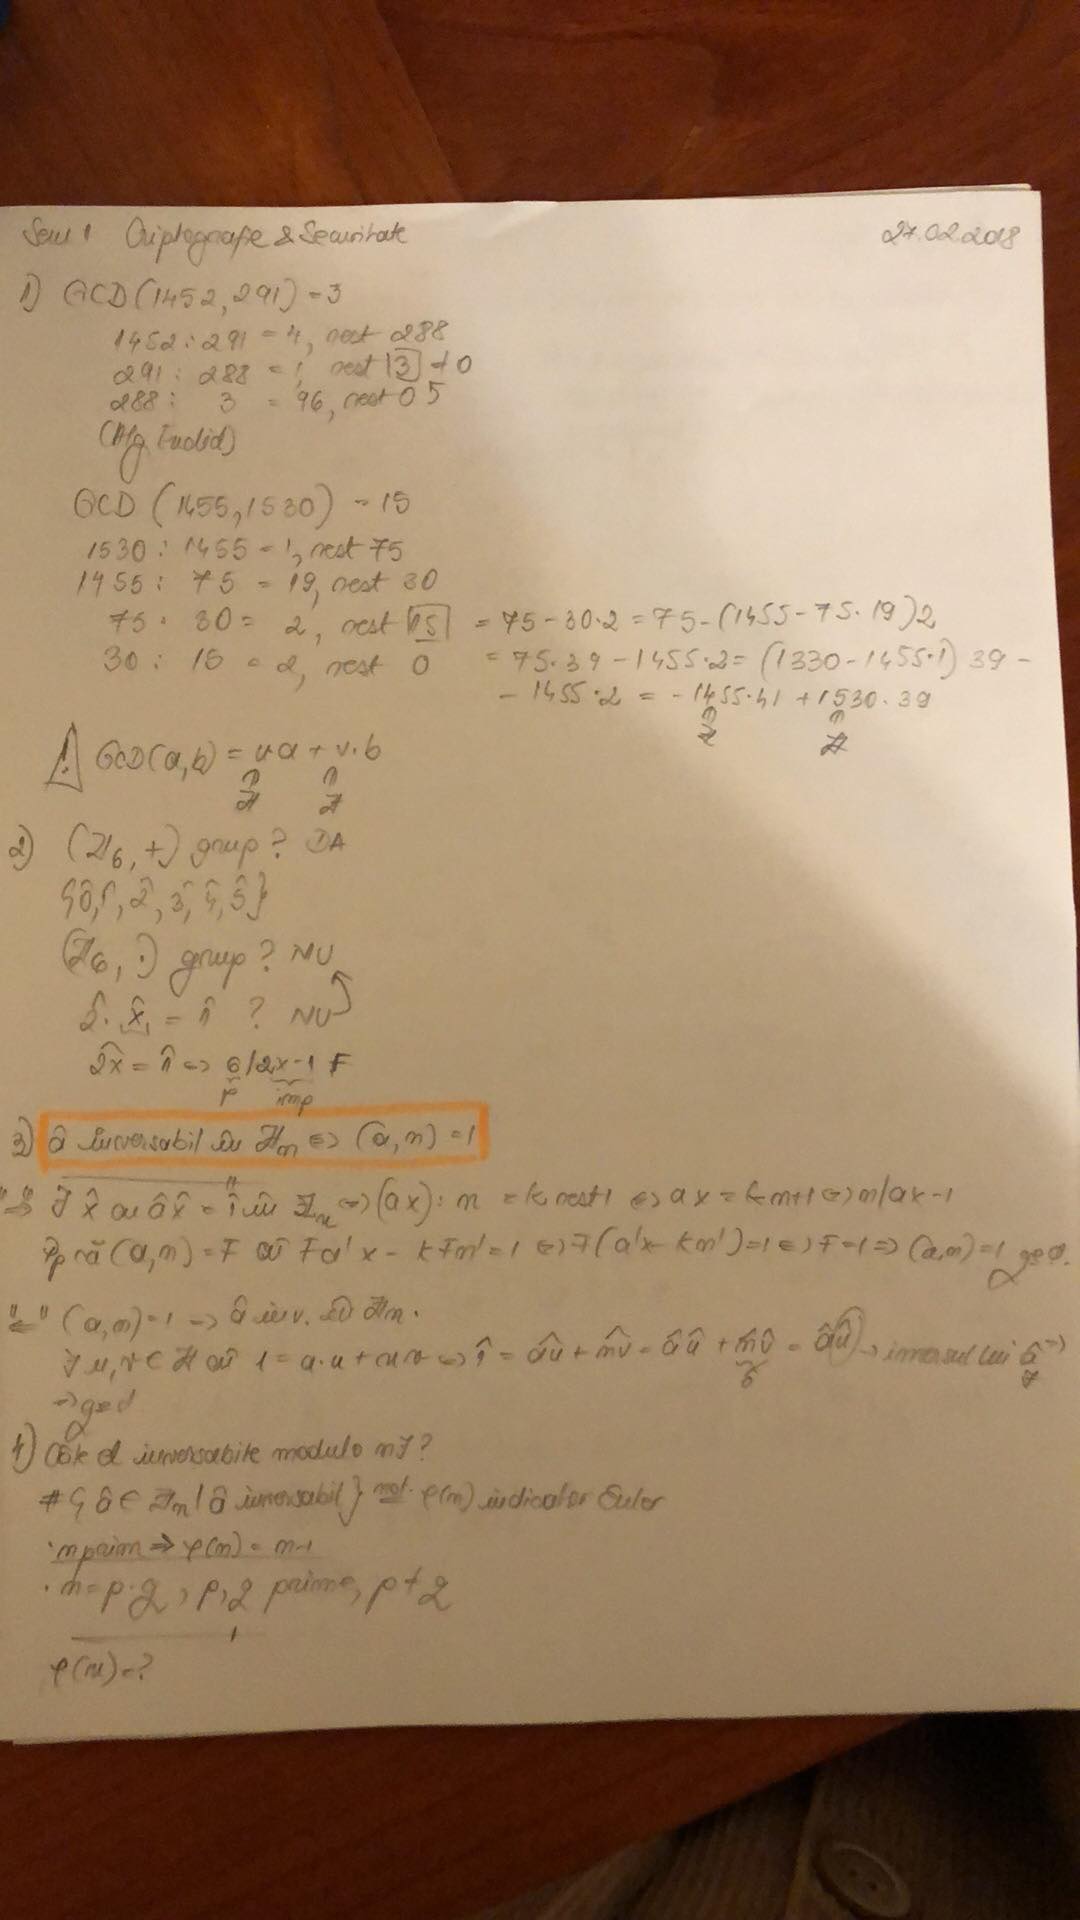 Sem 1 Criptografie & Securitate 27.02.2018
1) GCD(1452, 291) = 3
1452 : 291 = 4, rest 288
291 : 288 = 1, rest 3 ≠ 0
288 : 3 = 96, rest 0
(Alg Euclid)
GCD (1455, 1530) = 15
1530 : 1455 = 1, rest 75
1455 : 75 = 19, rest 30
75 : 30 = 2, rest 15 = 75 - 30·2 = 75 - (1455 - 75·19)2
30 : 15 = 2, rest 0 = 75·39 - 1455·2 = (1330 - 1455·1) 39 -
- 1455·2 = -1455·41 + 1530·39
ℤ ℤ
! GCD(a,b) = u·a + v·b
ℤ ℤ
2) (ℤ6, +) grup? DA
{0̂, 1̂, 2̂, 3̂, 4̂, 5̂}
(ℤ6, ·) grup? NU
2̂·x̂ = 1̂ ? NU
2x̂ = 1̂ ⇔ 6 | 2x-1 F
p imp
3) â inversabil în ℤn ⇔ (a, n) = 1
"⇒" ∃ x̂ aî âx̂ = 1̂ în ℤn ⇔ (ax) : n = k, rest 1 ⇔ ax = kn+1 ⇔ n | ax-1
Pp că (a,n) = F aî Fa'x - kFn' = 1 ⇔ F(a'x - kn') = 1 ⇔ F=1 ⇒ (a,n) = 1 qed.
"⇐" (a,n) = 1 ⇒ â inv. în ℤn.
∃ u,v ∈ ℤ aî 1 = a·u + n·v ⇔ 1̂ = âu + n̂v = âû + n̂v̂ = âû → inversul lui â ⇒
0̂
⇒ qed
4) Câte el inversabile modulo n ∃?
#{â ∈ ℤn | â inversabil} not. φ(n) indicator Euler
· n prim ⇒ φ(n) = n-1
· n = p·q, p,q prime, p ≠ q
φ(n) = ?